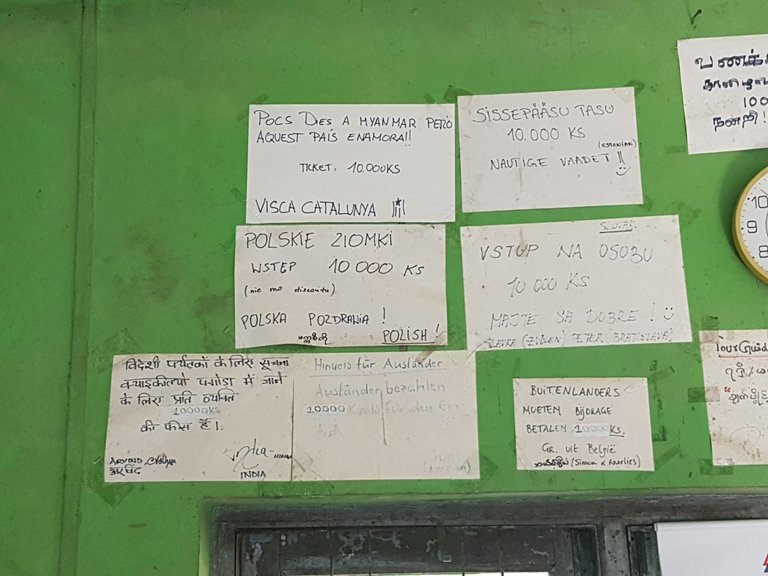 POCS DIES A MYANMAR PERÒ
AQUEST PAÍS ENAMORA!!
TICKET: 10.000KS
VISCA CATALUNYA
SISSEPÄÄSU TASU
10.000 KS
(ESTONIAN)
NAUTIGE VAADET !!
POLSKIE ZIOMKI
WSTEP 10 000 KS
(nie ma discontu)
POLSKA POZDRAWIA!
POLISH!
SLOVAK
VSTUP NA OSOBU
10 000 KS
MAJTE SA DOBRE!
(ZVOLEN) PETER (BRATISLAVA)
विदेशी पर्यटकों के लिए सूचना
पगोडा में जाने
के लिए प्रति व्यक्ति
10000KS
की फीस है।
ARVIND
INDIA
Hinweis für Ausländer
Ausländer bezahlen
10000 Kyats für den Ein
BUITENLANDERS
MOETEN BIJDRAGE
BETALEN 10000KS.
GR. UIT BELGIË
(Simon & Annelies)
100
நன்றி!
10
9
8
Tour Guid